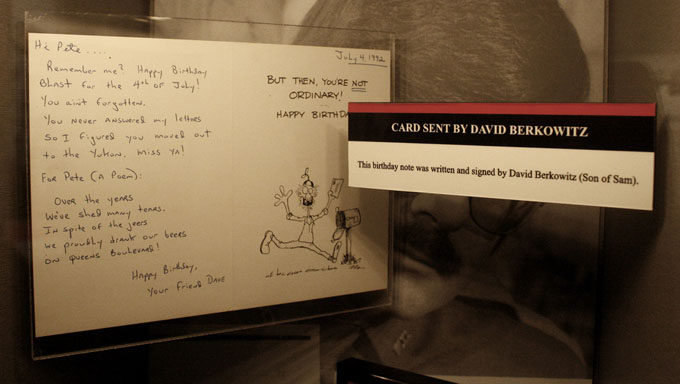 Hi Pete.....
Remember me? Happy Birthday
Blast for the 4th of July!
You ain't forgotten.
You never answered my letters
So I figured you moved out
to the Yukon. Miss ya!
For Pete (A Poem):
Over the years
We've shed many tears.
In spite of the jeers
We proudly drank our beers
On Queens Boulevard!
Happy Birthday,
Your Friend Dave
July 4, 1992
BUT THEN, YOU'RE NOT
ORDINARY!
HAPPY BIRTHDA
CARD SENT BY DAVID BERKOWITZ
This birthday note was written and signed by David Berkowitz (Son of Sam).